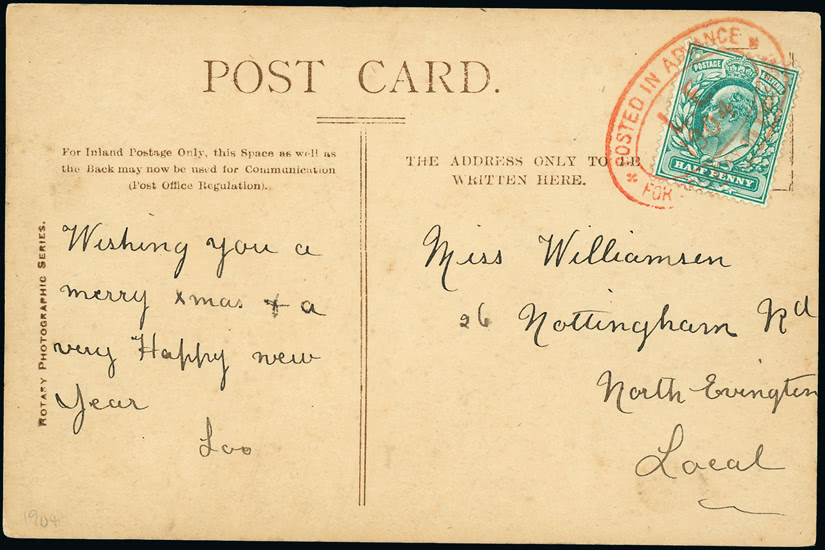 POST CARD.
For Inland Postage Only, this Space as well as
the Back may now be used for Communication
(Post Office Regulation).
THE ADDRESS ONLY TO BE
WRITTEN HERE.
ROTARY PHOTOGRAPHIC SERIES.
POSTED IN ADVANCE
FOR
POSTAGE
HALF PENNY
Wishing you a
merry xmas + a
very Happy new
Year
Loo
Miss Williamsen
26 Nottingham Rd
North Evington
Local
1904